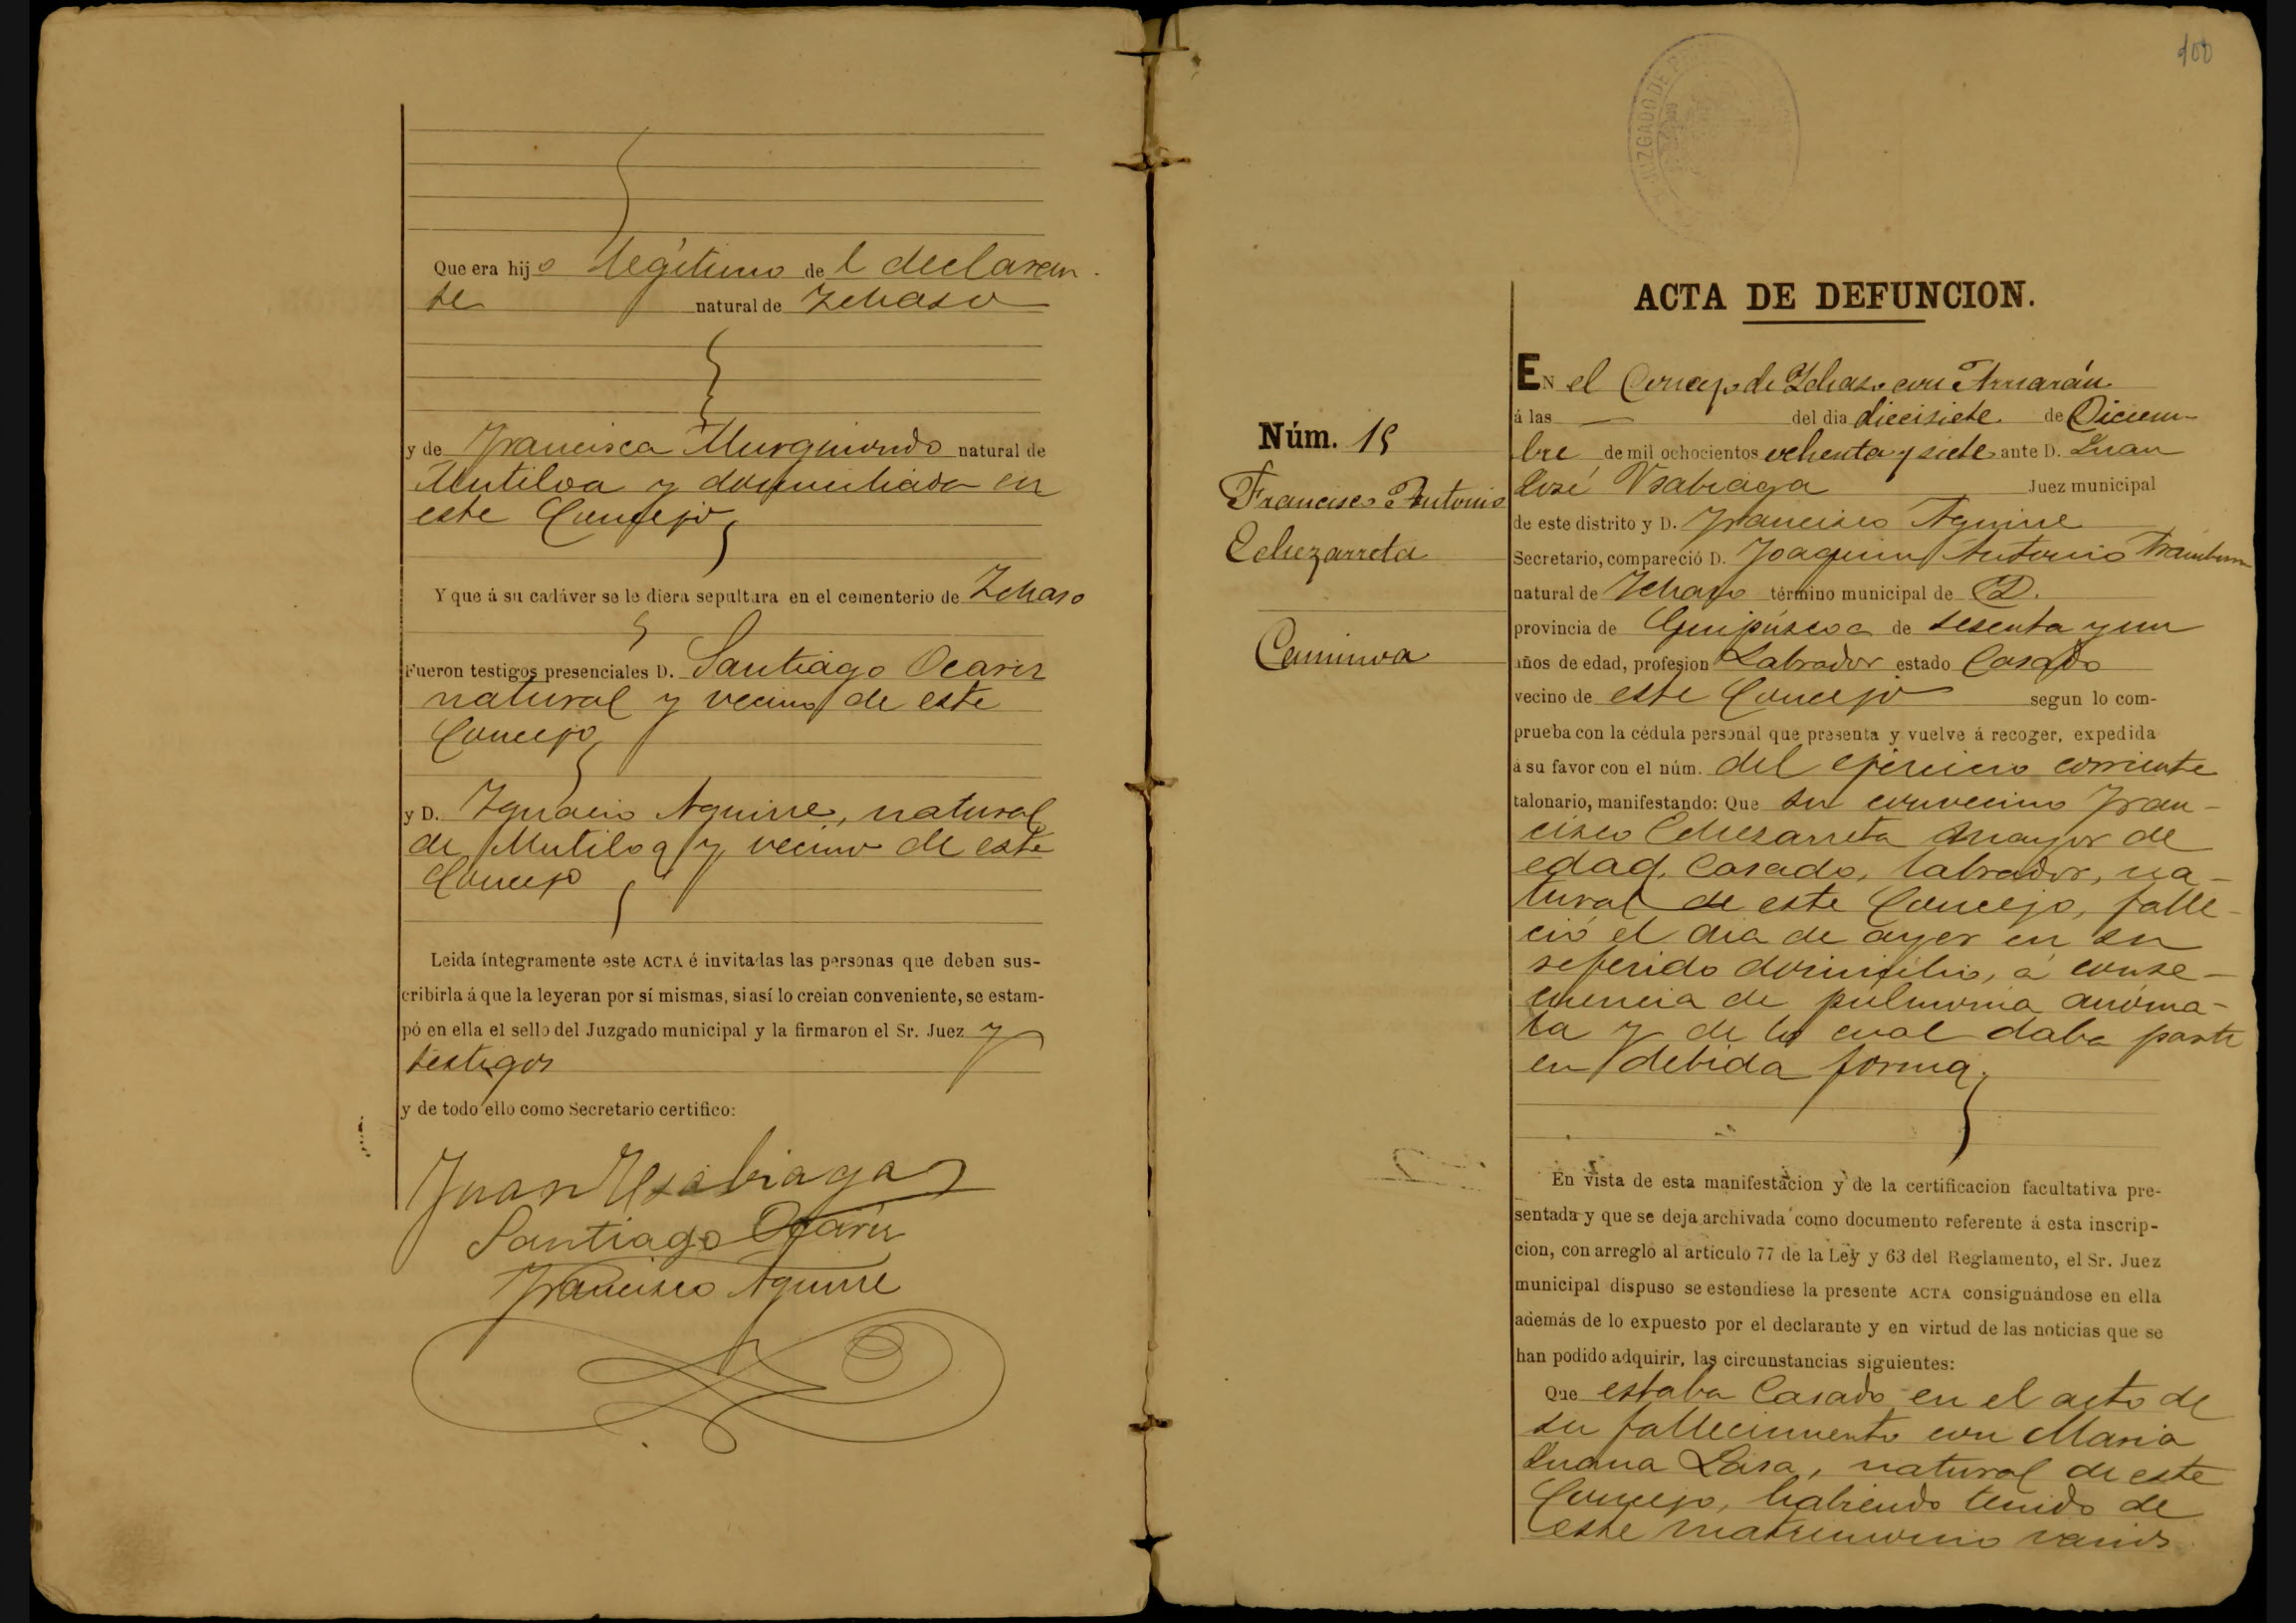 Que era hijo legítimo de l declaran
te natural de Ichaso
y de Francisca Murguiondo natural de
Mutiloa y domiciliada en
este Concejo
Y que á su cadáver se le diera sepultura en el cementerio de Ichaso
Fueron testigos presenciales D. Santiago Ocariz
natural y vecino de este
Concejo
y D. Ignacio Aguirre, natural
de Mutiloa y vecino de este
Concejo
Leida íntegramente este ACTA é invitadas las personas que deben sus-
cribirla á que la leyeran por sí mismas, si así lo creian conveniente, se estam-
pó en ella el sello del Juzgado municipal y la firmaron el Sr. Juez y
testigos
y de todo ello como Secretario certifico:
Juan Usabiaga
Santiago Ocariz
Francisco Aguirre
100
JUZGADO DE
ACTA DE DEFUNCION.
Núm. 15
Francisco Antonio
Echezarreta
Caminoa
EN el Concejo de Ichaso con Arriarán
á las — del dia diecisiete de Diciem-
bre de mil ochocientos ochenta y siete ante D. Juan
José Usabiaga Juez municipal
de este distrito y D. Francisco Aguirre
Secretario, compareció D. Joaquin Antonio
natural de Ichaso término municipal de Id.
provincia de Guipúscoa de sesenta y un
años de edad, profesion Labrador estado Casado
vecino de este Concejo segun lo com-
prueba con la cédula personal que presenta y vuelve á recoger, expedida
á su favor con el núm. del ejercicio corriente
talonario, manifestando: Que su convecino Fran-
cisco Echezarreta mayor de
edad, Casado, labrador, na-
tural de este Concejo, falle-
ció el dia de ayer en su
referido domicilio, á conse-
cuencia de pulmonia anóma-
la y de lo cual daba parte
en debida forma.
En vista de esta manifestacion y de la certificacion facultativa pre-
sentada y que se deja archivada como documento referente á esta inscrip-
cion, con arreglo al articulo 77 de la Ley y 63 del Reglamento, el Sr. Juez
municipal dispuso se estendiese la presente ACTA consignándose en ella
además de lo expuesto por el declarante y en virtud de las noticias que se
han podido adquirir, las circunstancias siguientes:
Que estaba Casado en el acto de
su fallecimiento con Maria
Juana Lasa, natural de este
Concejo, habiendo tenido de
este matrimonio varios